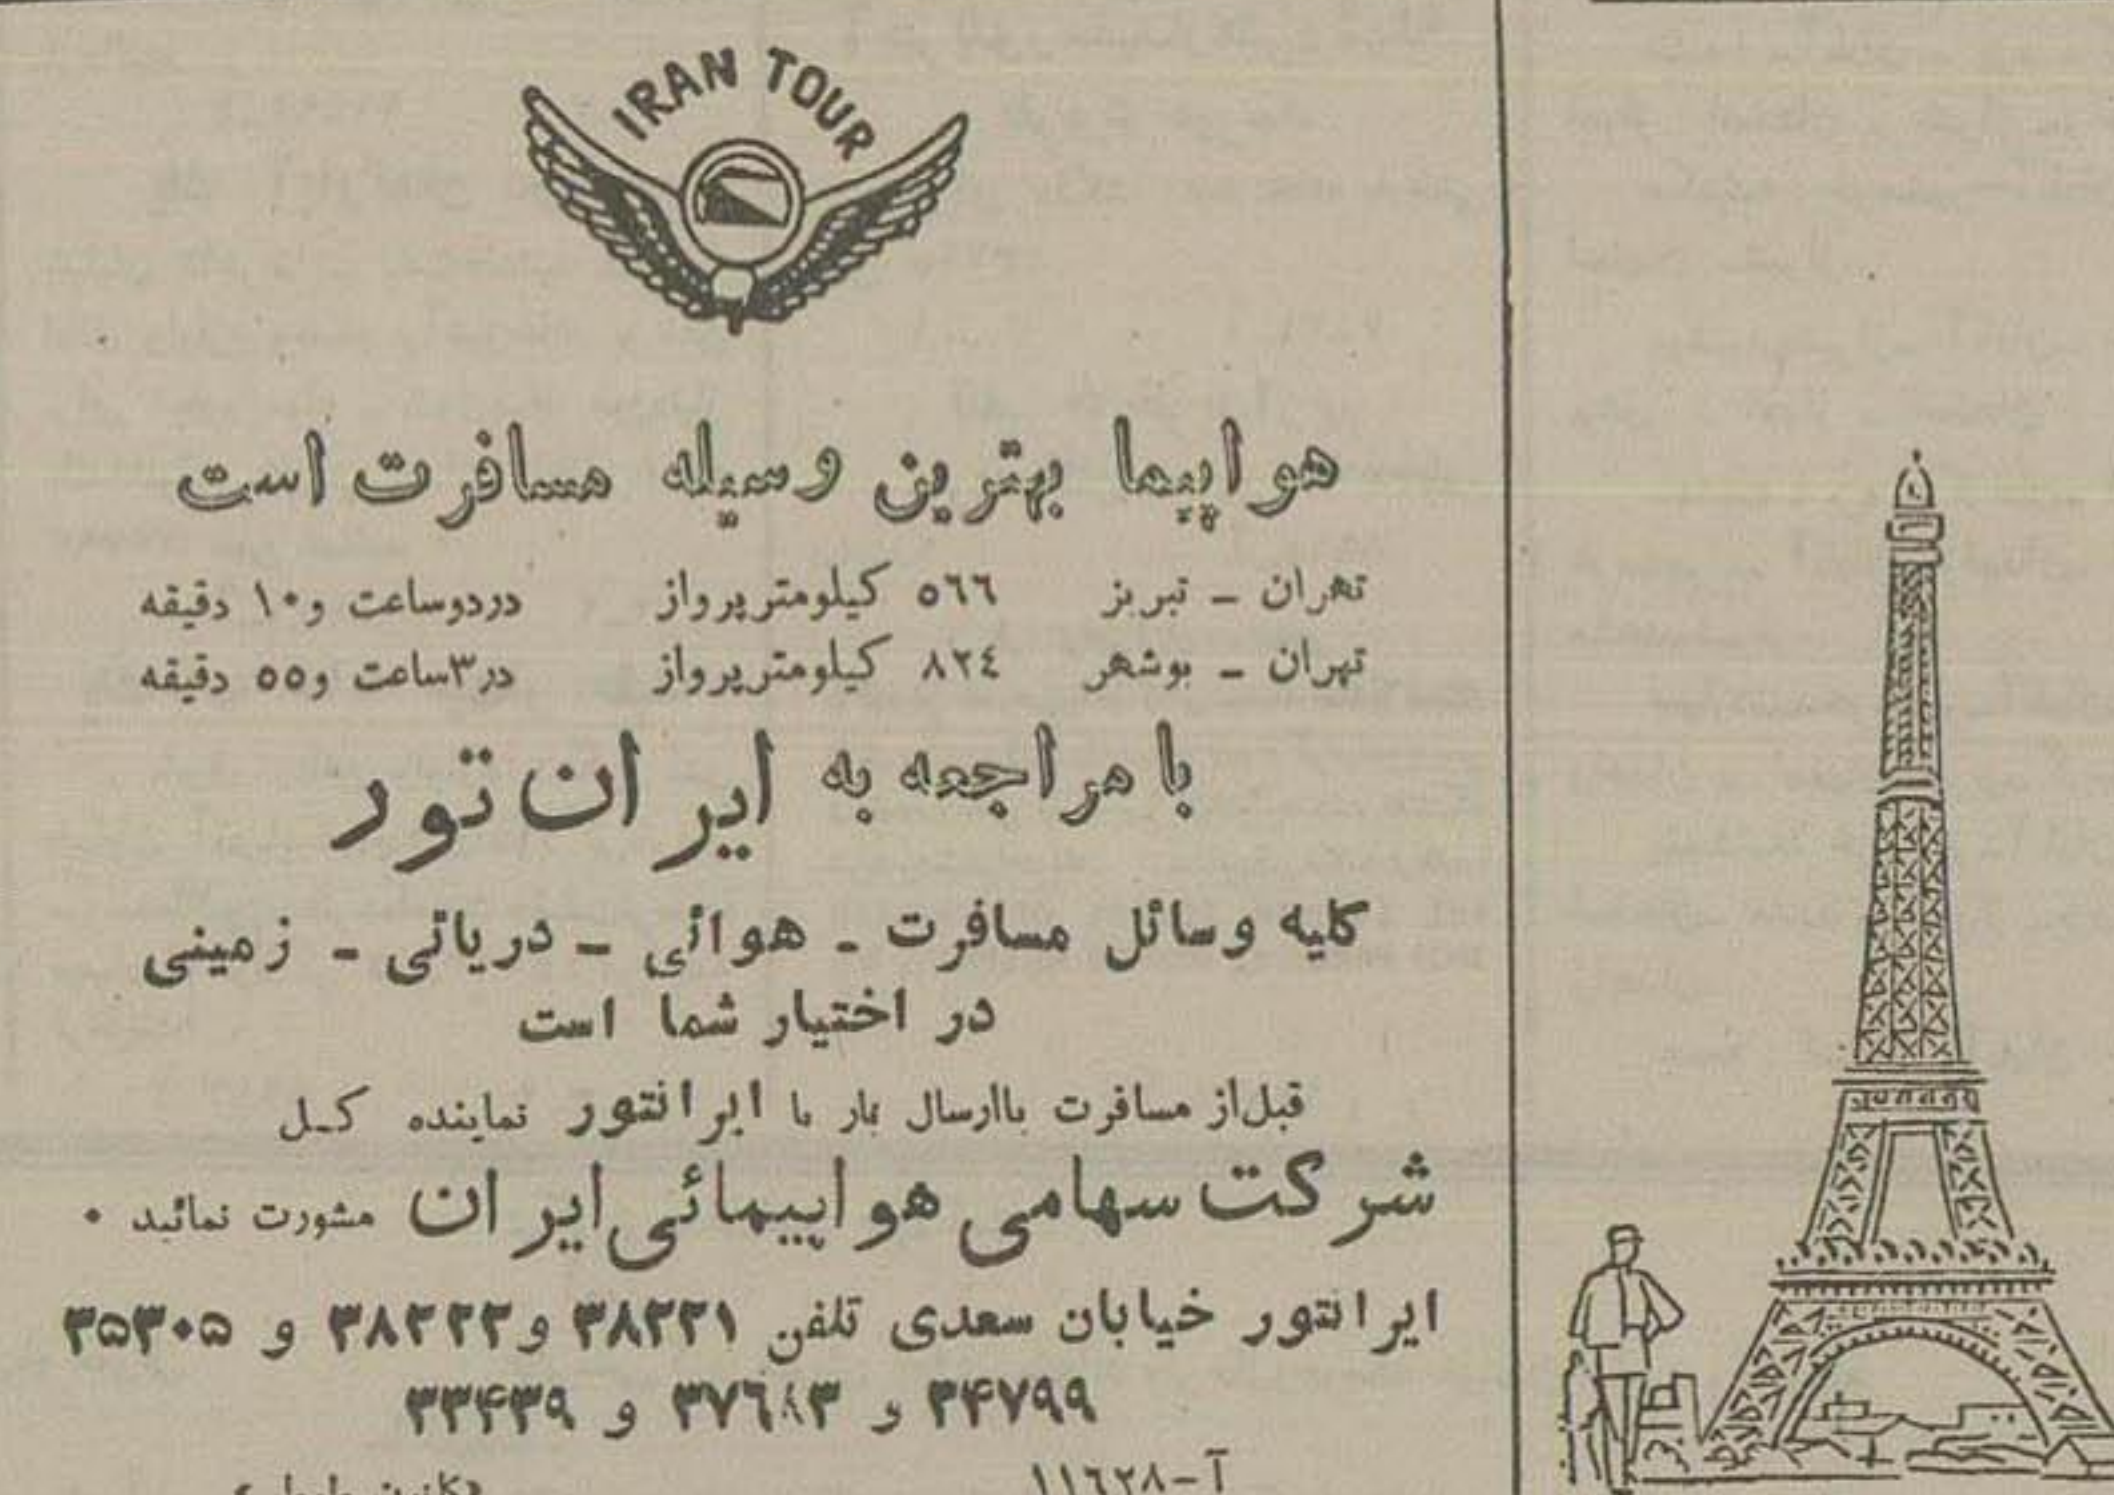 IRAN TOUR
هواپیما بهترین وسیله مسافرت است
تهران ـ تبریز ٥٦٦ کیلومتر پرواز در دو ساعت و ۱۰ دقیقه
تهران ـ بوشهر ٨٢٤ کیلومتر پرواز در ۳ ساعت و ٥٥ دقیقه
با مراجعه به ایران تور
کلیه وسائل مسافرت ـ هوائی ـ دریائی ـ زمینی
در اختیار شما است
قبل از مسافرت یا ارسال بار با ایرانتور نماینده کـل
شرکت سهامی هواپیمائی ایران مشورت نمائید ۰
ایرانتور خیابان سعدی تلفن ۳۸۲۳۱ و ۳۸۲۳۳ و ۳۵۳۰۵
۳۴۷۹۹ و ۳۷۶۸۳ و ۳۳۴۳۹
آ-۱۱٦٢٨